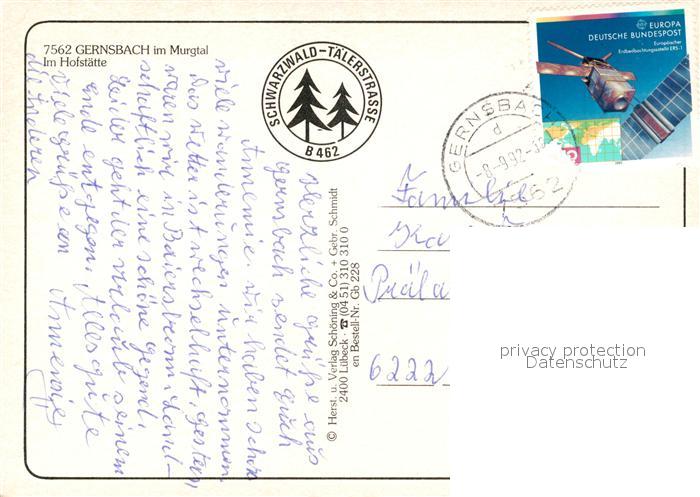 7562 GERNSBACH im Murgtal
Im Hofstätte
SCHWARZWALD-TÄLERSTRASSE
B 462
EUROPA
DEUTSCHE BUNDESPOST
Europäischer
Erdbeobachtungssatellit ERS-1
GERNSBACH
d
-8.-9.92-
Herzliche Grüße aus
Gernsbach sendet Euch
Annemie. Wir haben schon
viele Wanderungen unternommen.
Das Wetter ist wechselhaft, gestern
waren wir in Baiersbronn. Land-
schaftlich eine schöne Gegend.
Leider geht der Urlaub seinem
Ende entgegen. Alles gute
Viele Grüße an
Annemie
© Herst. u. Verlag Schöning & Co. + Gebr. Schmidt
2400 Lübeck · ☎ (04 51) 310 310 0
en Bestell-Nr. Gb 228
Familie
Ka
Präla
6222
privacy protection
Datenschutz